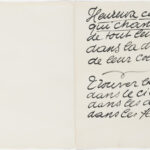 Heureux ce
qui chan
de tout
dans la d
de leur co
Trouver l
dans le ci
dans les a
dans les fl